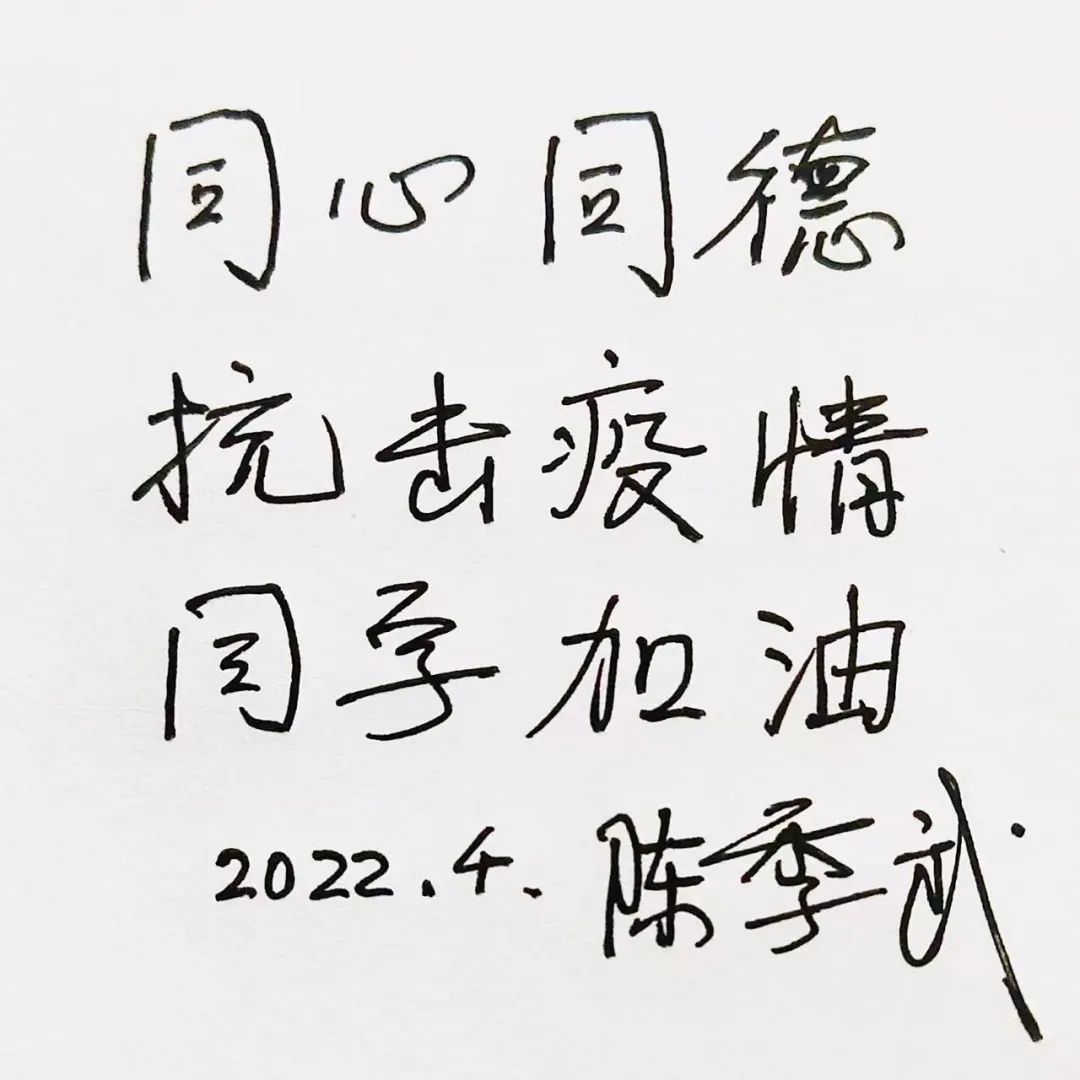 同心同德
抗击疫情
同学加油
2022.4. 陈季武